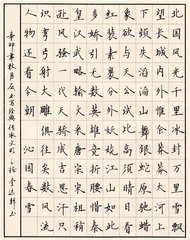 北国风光千里冰封万里雪飘
望长城内外惟余莽莽大河上
下顿失滔滔山舞银蛇原驰蜡
象欲与天公试比高须晴日看
红装素裹分外妖娆江山如此
多娇引无数英雄竞折腰惜秦
皇汉武略输文采唐宗宋祖稍
逊风骚一代天骄成吉思汗只
识弯弓射大雕俱往矣数风流
人物还看今朝 沁园春雪
辛卯年秋月